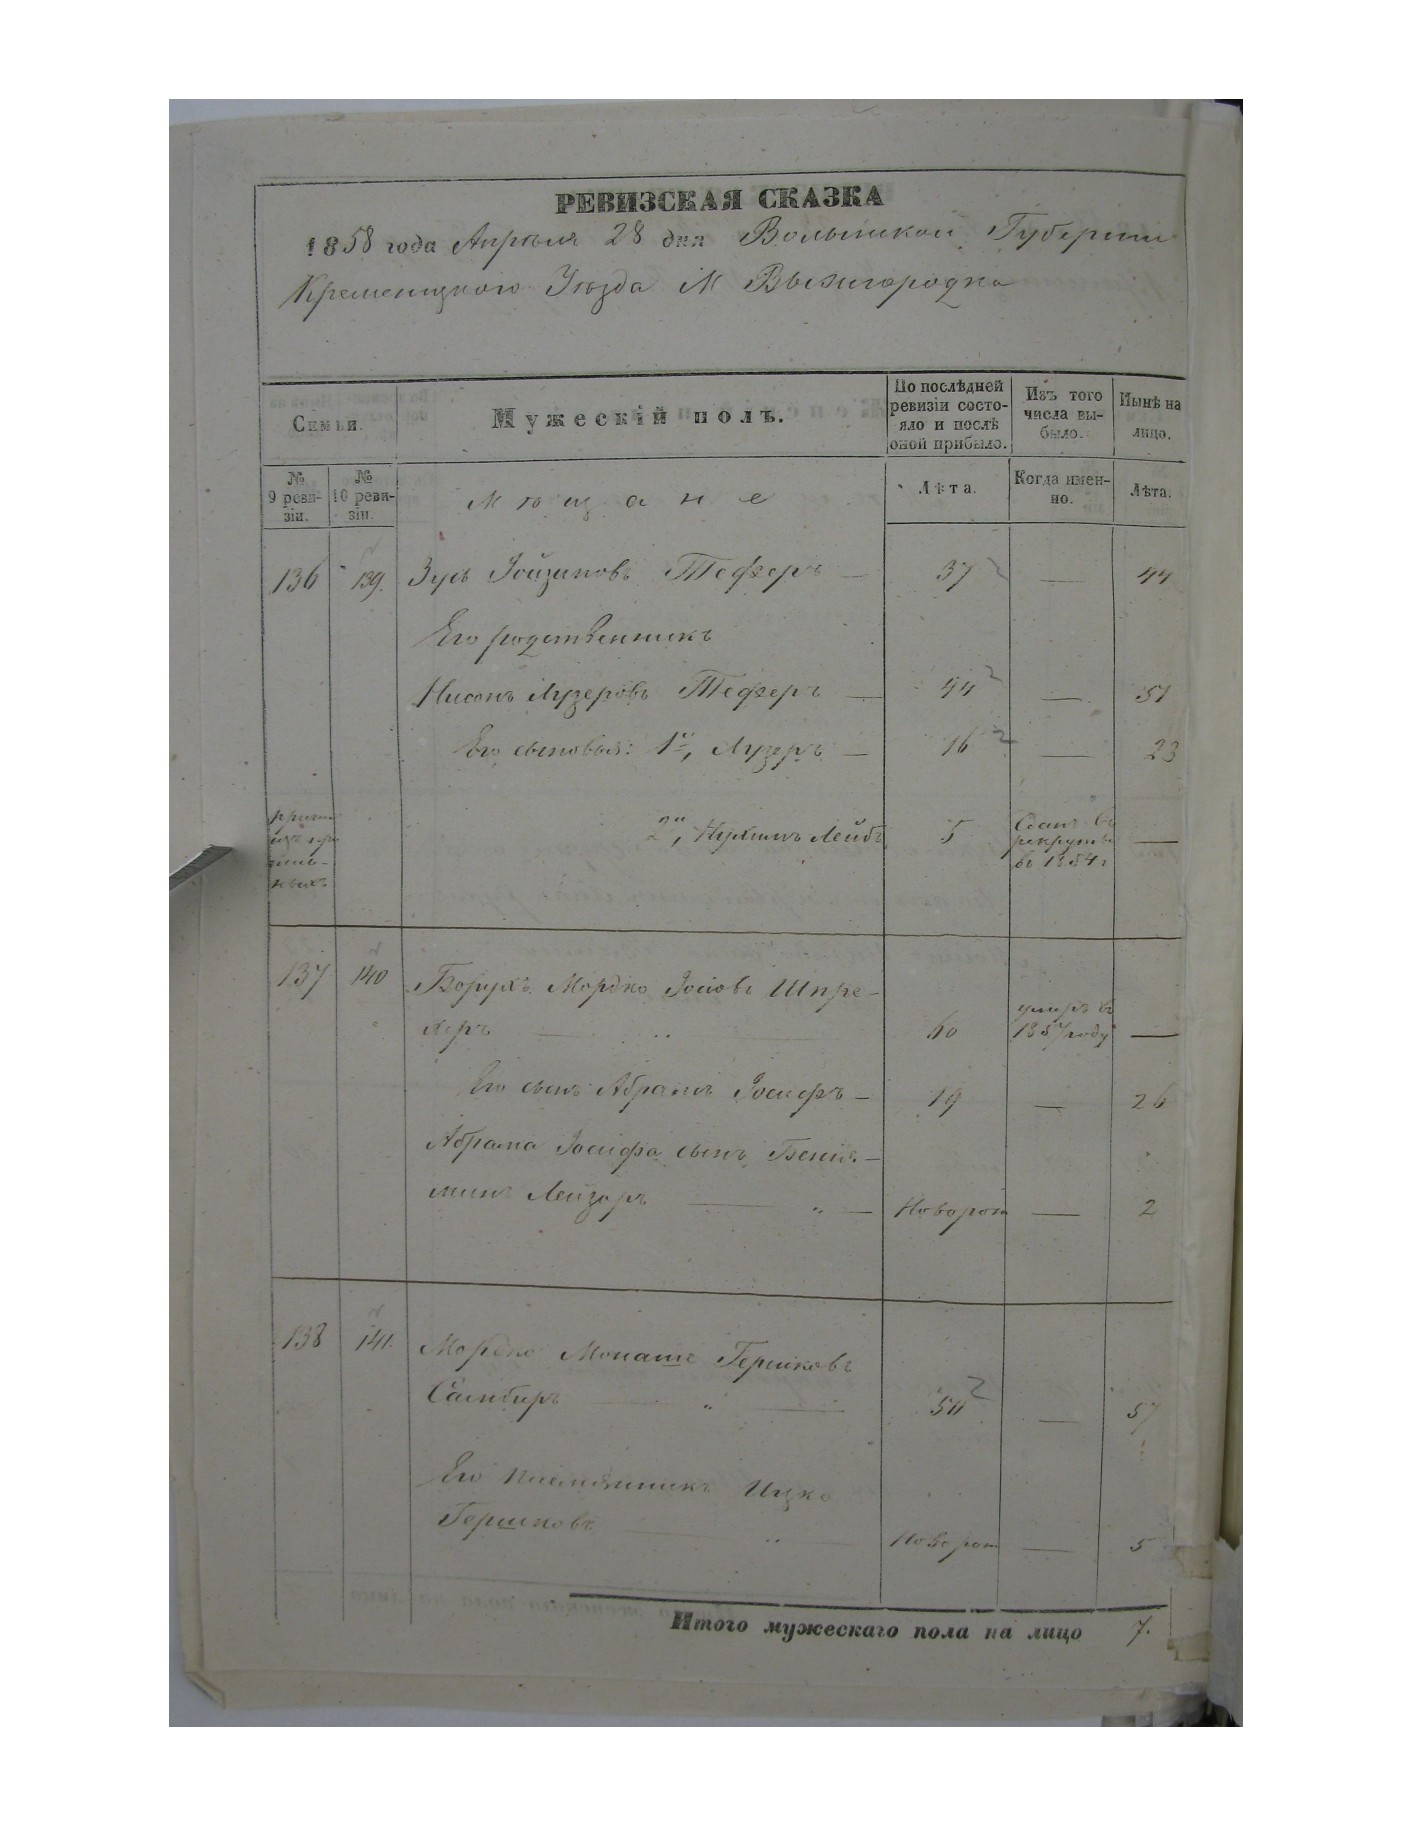 РЕВИЗСКАЯ СКАЗКА
1858 года Апрѣля 28 дня Волынской Губерніи
Кременецкого Уѣзда М Вышгородка
Семьи.
Мужескій полъ.
По послѣдней ревизіи состо-
яло и послѣ
оной прибыло.
Изъ того
числа вы-
было.
Нынѣ на
лицо.
№
9 реви-
зіи.
№
10 реви-
зіи.
Мѣщане
Лѣта.
Когда имен-
но.
Лѣта.
136 139. Зусь Іойзиповъ Теферъ — 37 — 44
Его родственникъ
Нисонъ Лузеровъ Теферъ — 44 — 51
Его сыновья: 1й, Лузеръ — 16 — 23
2й, Нухимъ Лейбъ 5 —
Сданъ въ
рекруты
въ 1854 г
137 140 Борухъ Мордко Іосіовъ Шпре-
херъ — „ — 60 —
умеръ въ
1857 году
Его сынъ Абрамъ Іосифъ — 19 — 26
Абрама Іосифа сынъ Бенія-
минъ Лейзоръ — „ — Новорож — 2
138 141. Мордко Монаше Гершковъ
Самбиръ — „ — 50 — 57
Его племянникъ Ицко
Гершковъ — „ — Новорож — 5
Итого мужескаго пола на лицо 7.